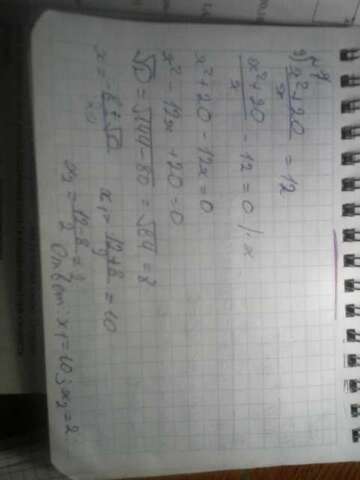 №7
a) x²+20/x = 12
x²+20/x - 12 = 0 | · x
x² + 20 - 12x = 0
x² - 12x + 20 = 0
√D = √144-80 = √64 = 8
x = -b±√D/2a x₁ = 12+8/2 = 10
x₂ = 12-8/2 = 2
Ответ: x₁=10; x₂=2.